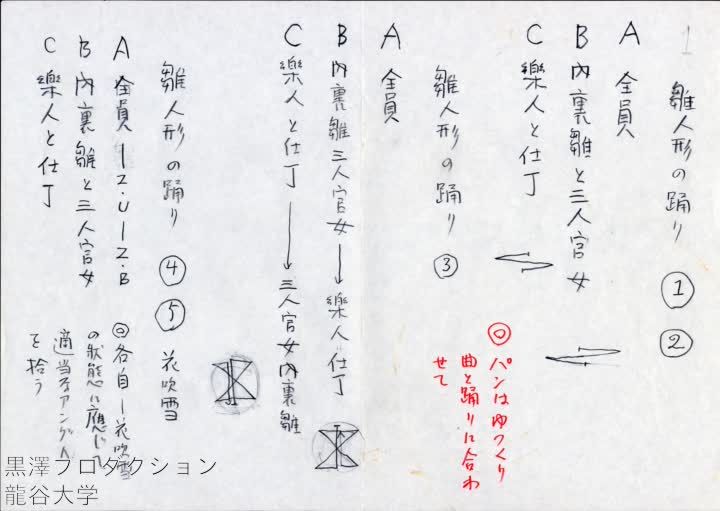 1
雛人形の踊り ① ②
A 全員
B 内裏雛と三人官女
C 樂人と仕丁
◎ パンはゆっくり
曲と踊りに合わ
せて
雛人形の踊り ③
A 全員
B 内裏雛三人官女→樂人仕丁
C 樂人と仕丁→三人官女内裏雛
雛人形の踊り ④ ⑤ 花吹雪
A 全員 ーZ・UーZ・B
B 内裏雛と三人官女
C 樂人と仕丁
◎各自ー花吹雪
の状態に應じて
適当なアングル
を拾う
黒澤プロダクション
龍谷大学